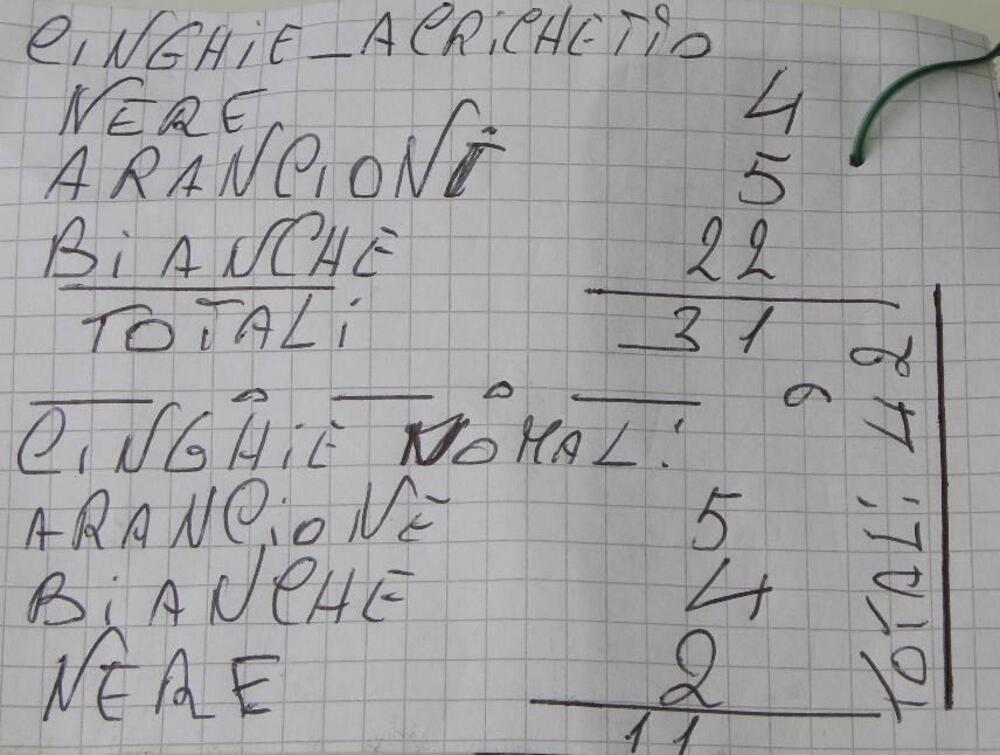 CINGHIE - ACRICHETTO
NERE 4
ARANCIONI 5
BIANCHE 22
TOTALI 31
CINGHIE NOMALI
ARANCIONE 5
BIANCHE 4
NERE 2
11
TOTALI 42